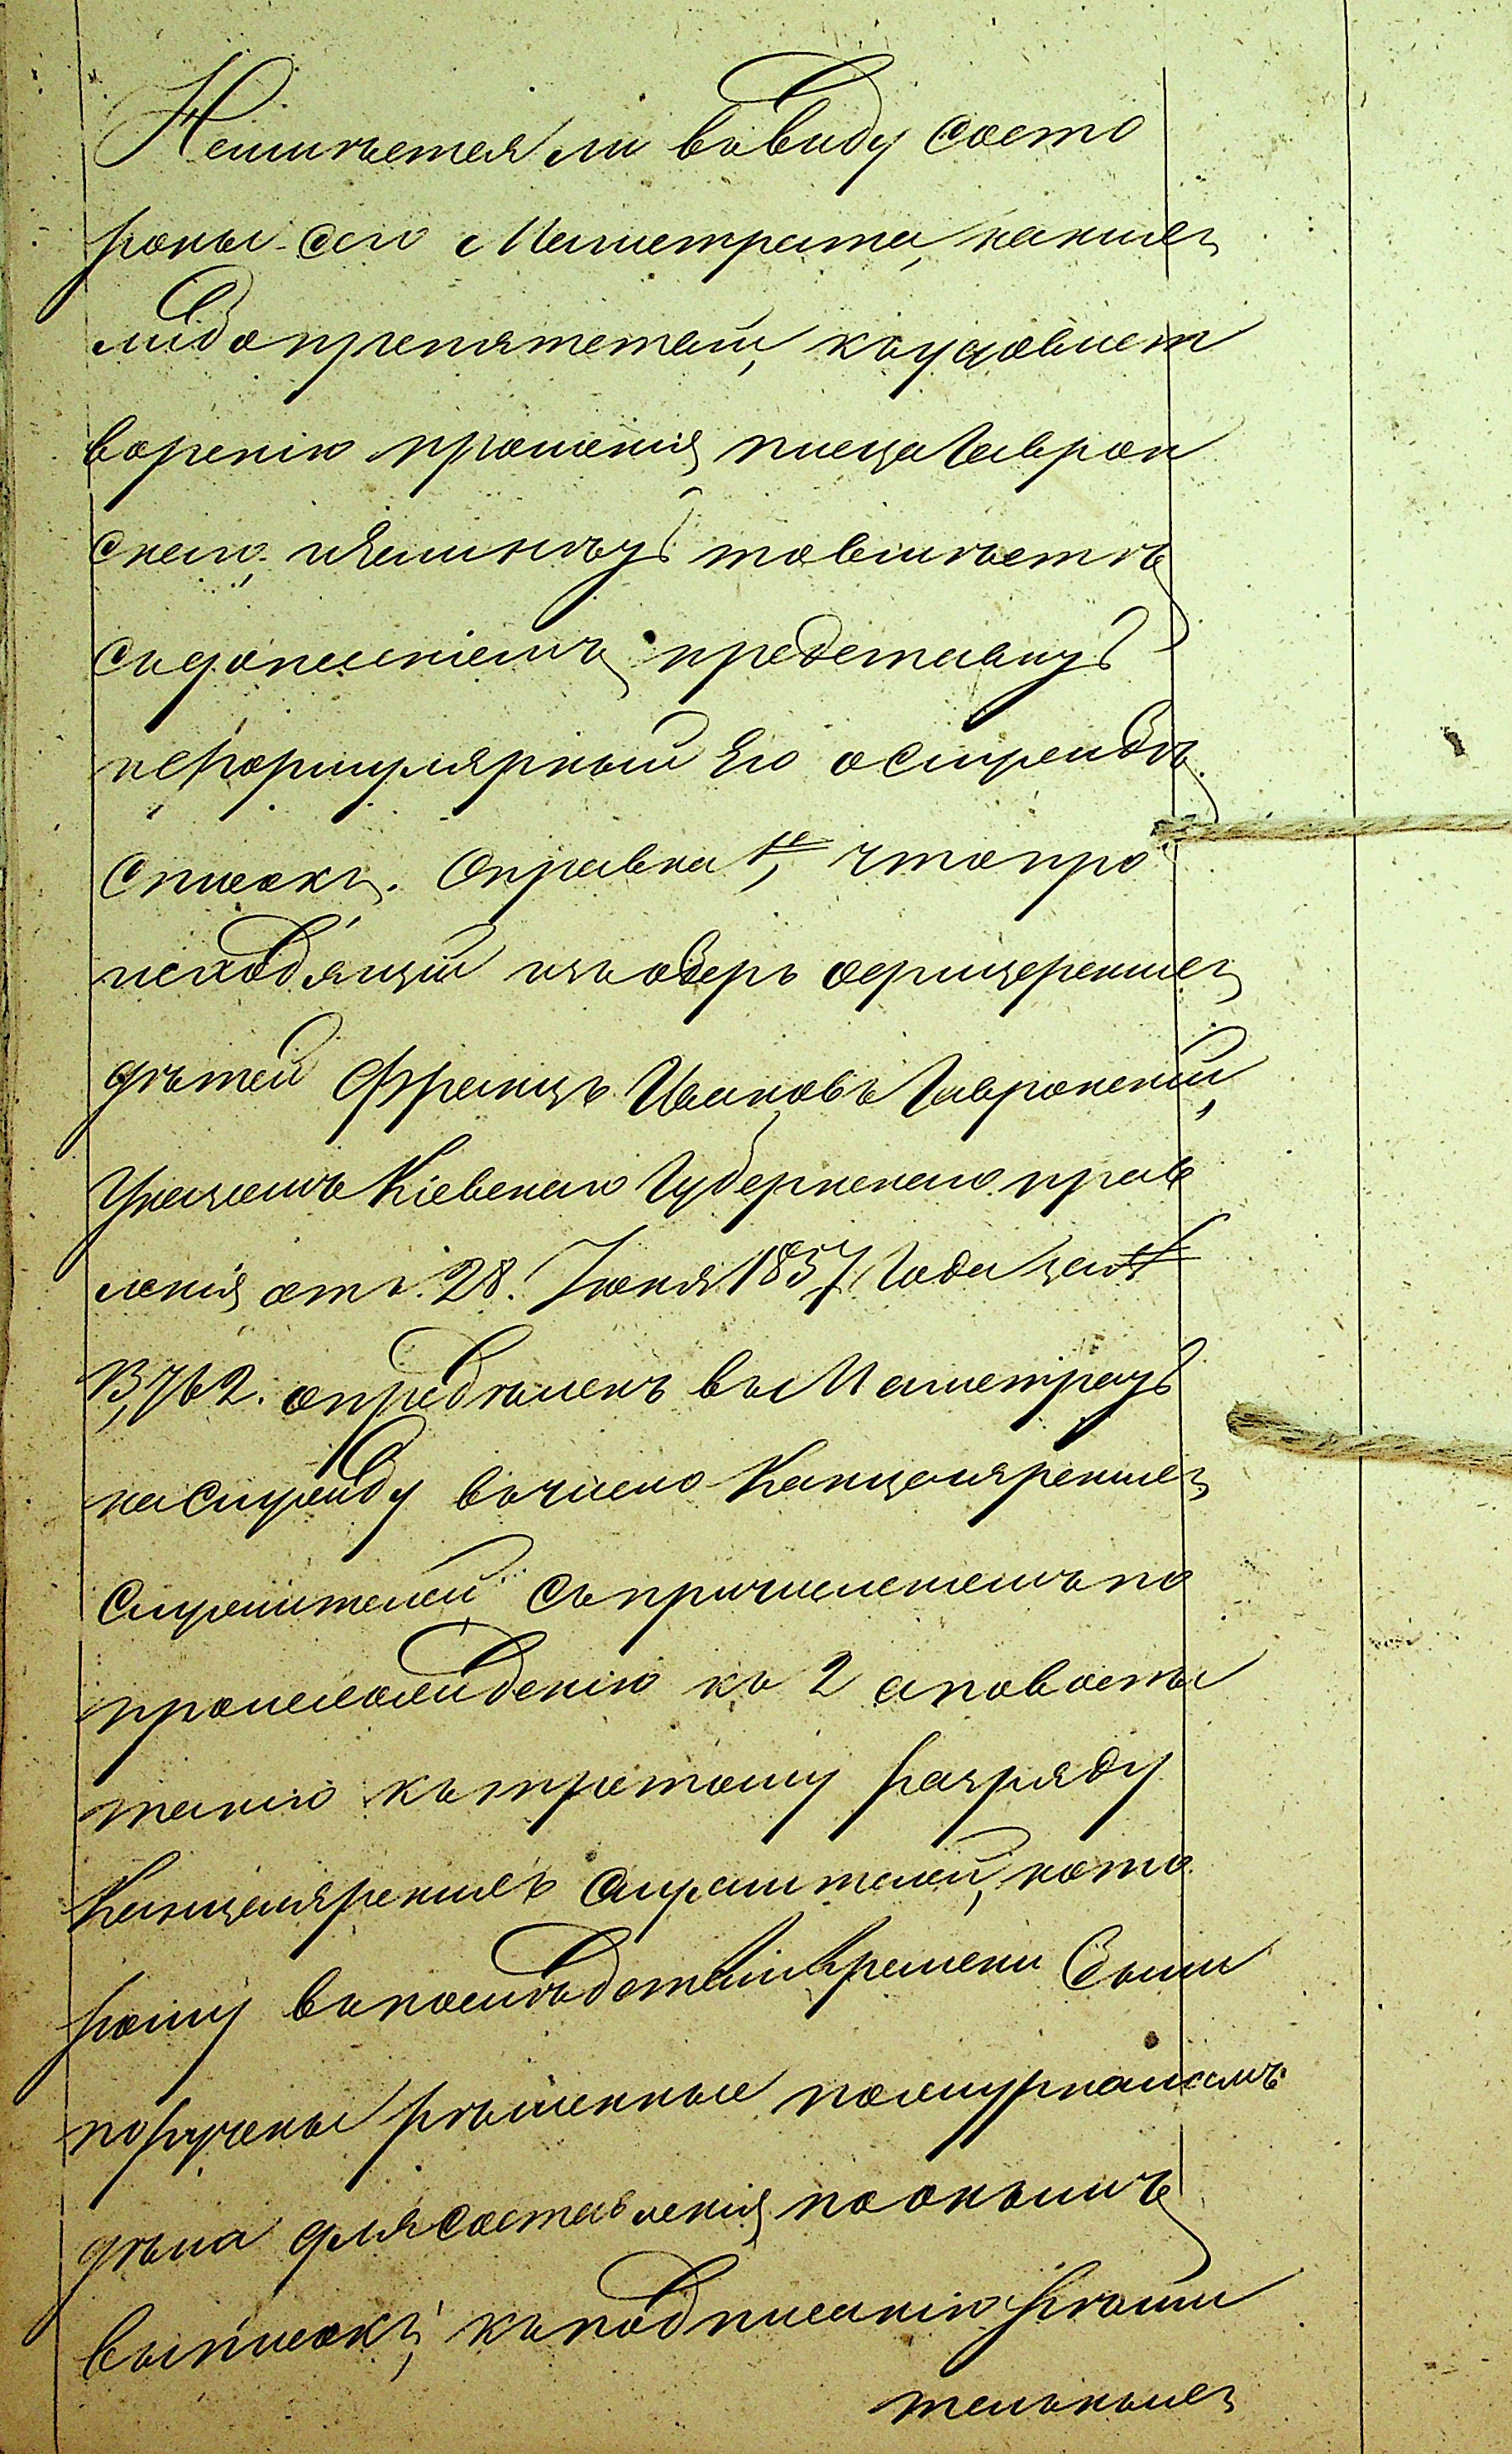 Неимѣется ли въ виду состо
роны сего Магистрата, какихъ
либо препятствій, къ удовлет
воренію прошенія писца Гаврон
скаго, и если нѣтъ то вмѣстѣ
съ донесеніемъ представить
и Формулярный Его о службѣ
списокъ. Справка 1е, что про
исходящій изъ оберъ офицерскихъ
дѣтей Францъ Ивановъ Гавронскій,
Указомъ Кіевскаго Губернскаго прав
ленія отъ 28. Іюня 1857 года за №
13,762. опредѣленъ въ Магистратъ
на службу въ число Канцелярскихъ
служителей съ причисленіемъ по
происхожденію къ 2 а по воспи
танію къ третьему разряду
Канцелярскихъ служителей, кото
рому въ послѣдствіи времени были
поручены рѣшенные по журналамъ
дѣла для составленія по онымъ
выписокъ, къ подписанію рѣши
тельныхъ